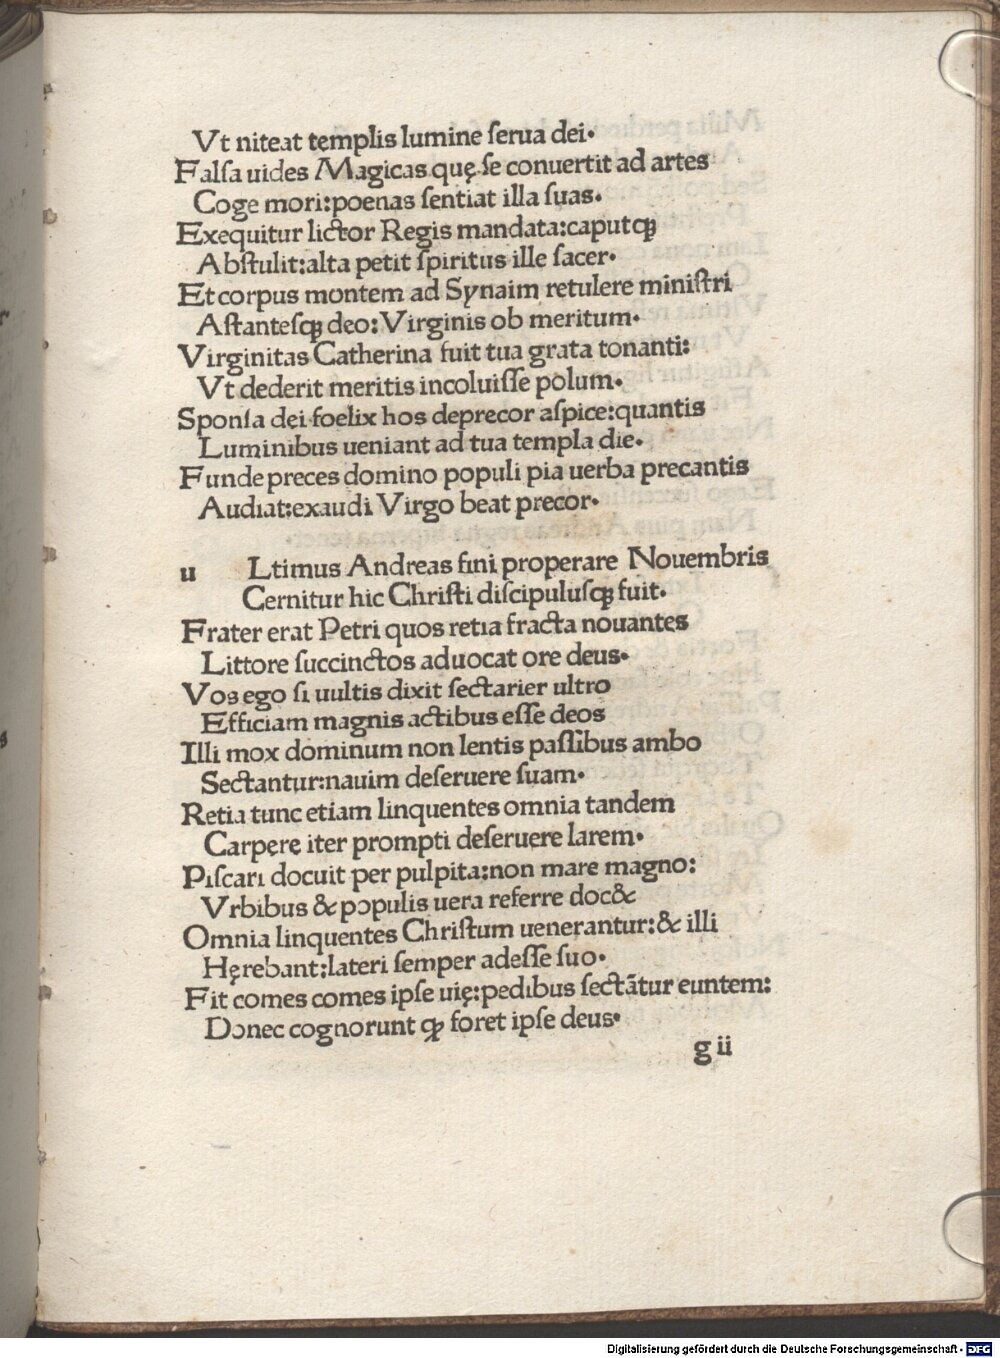 Vt niteat templis lumine ſerua dei.
Falſa uides Magicas quę ſe conuertit ad artes
Coge mori:poenas ſentiat illa ſuas.
Exequitur lictor Regis mandata:caputqꝫ
Abſtulit:alta petit ſpiritus ille ſacer.
Et corpus montem ad Synaim retulere miniſtri
Aſtanteſqꝫ deo:Virginis ob meritum.
Virginitas Catherina fuit tua grata tonanti:
Vt dederit meritis incoluiſſe polum.
Sponſa dei foelix hos deprecor aſpice:quantis
Luminibus ueniant ad tua templa die.
Funde preces domino populi pia uerba precantis
Audiat:exaudi Virgo beat precor.
u Ltimus Andreas fini properare Nouembris
Cernitur hic Chriſti diſcipuluſqꝫ fuit.
Frater erat Petri quos retia fracta nouantes
Littore ſuccinctos aduocat ore deus.
Vos ego ſi uultis dixit ſectarier ultro
Efficiam magnis actibus eſſe deos
Illi mox dominum non lentis paſſibus ambo
Sectantur:nauim deſeruere ſuam.
Retia tunc etiam linquentes omnia tandem
Carpere iter prompti deſeruere larem.
Piſcari docuit per pulpita:non mare magno:
Vrbibus & populis uera referre doc&
Omnia linquentes Chriſtum uenerantur:& illi
Hęrebant:lateri ſemper adeſſe ſuo.
Fit comes comes ipſe uię:pedibus ſectãtur euntem:
Donec cognorunt ꝙ foret ipſe deus.
g ii
Digitalisierung gefördert durch die Deutsche Forschungsgemeinschaft - DFG